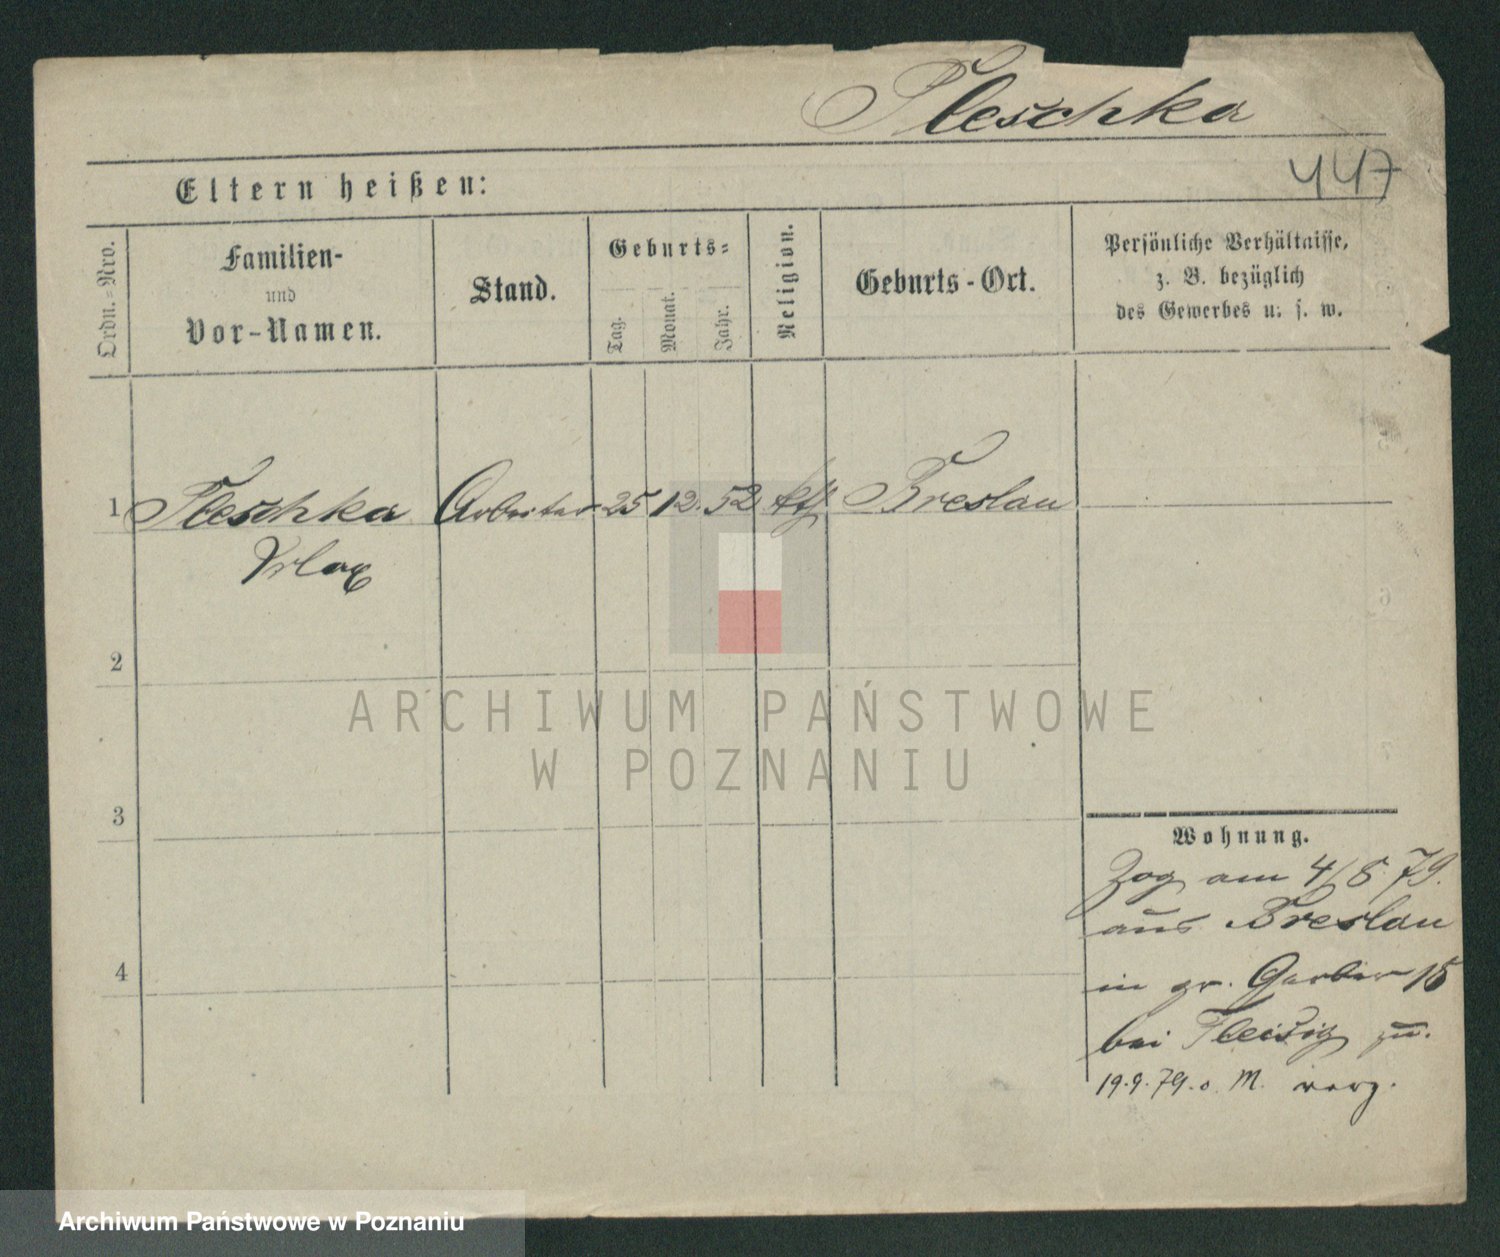 Fleschka
447
Eltern heißen:
Ordn.-Nro.
Familien-
und
Vor-Namen.
Stand.
Geburts-
Tag.
Monat.
Jahr.
Religion.
Geburts-Ort.
Persönliche Verhältnisse,
z. B. bezüglich
des Gewerbes u. s. w.
1 Fleschka Arbeiter 25 12. 52 kth Breslau
2
3
4
Wohnung.
Zog am 4/8 79.
aus Breslau
in gr. Gerber 15
bei Fleisig zu.
19.9.79. o. M. verz.
ARCHIWUM PAŃSTWOWE
W POZNANIU
Archiwum Państwowe w Poznaniu